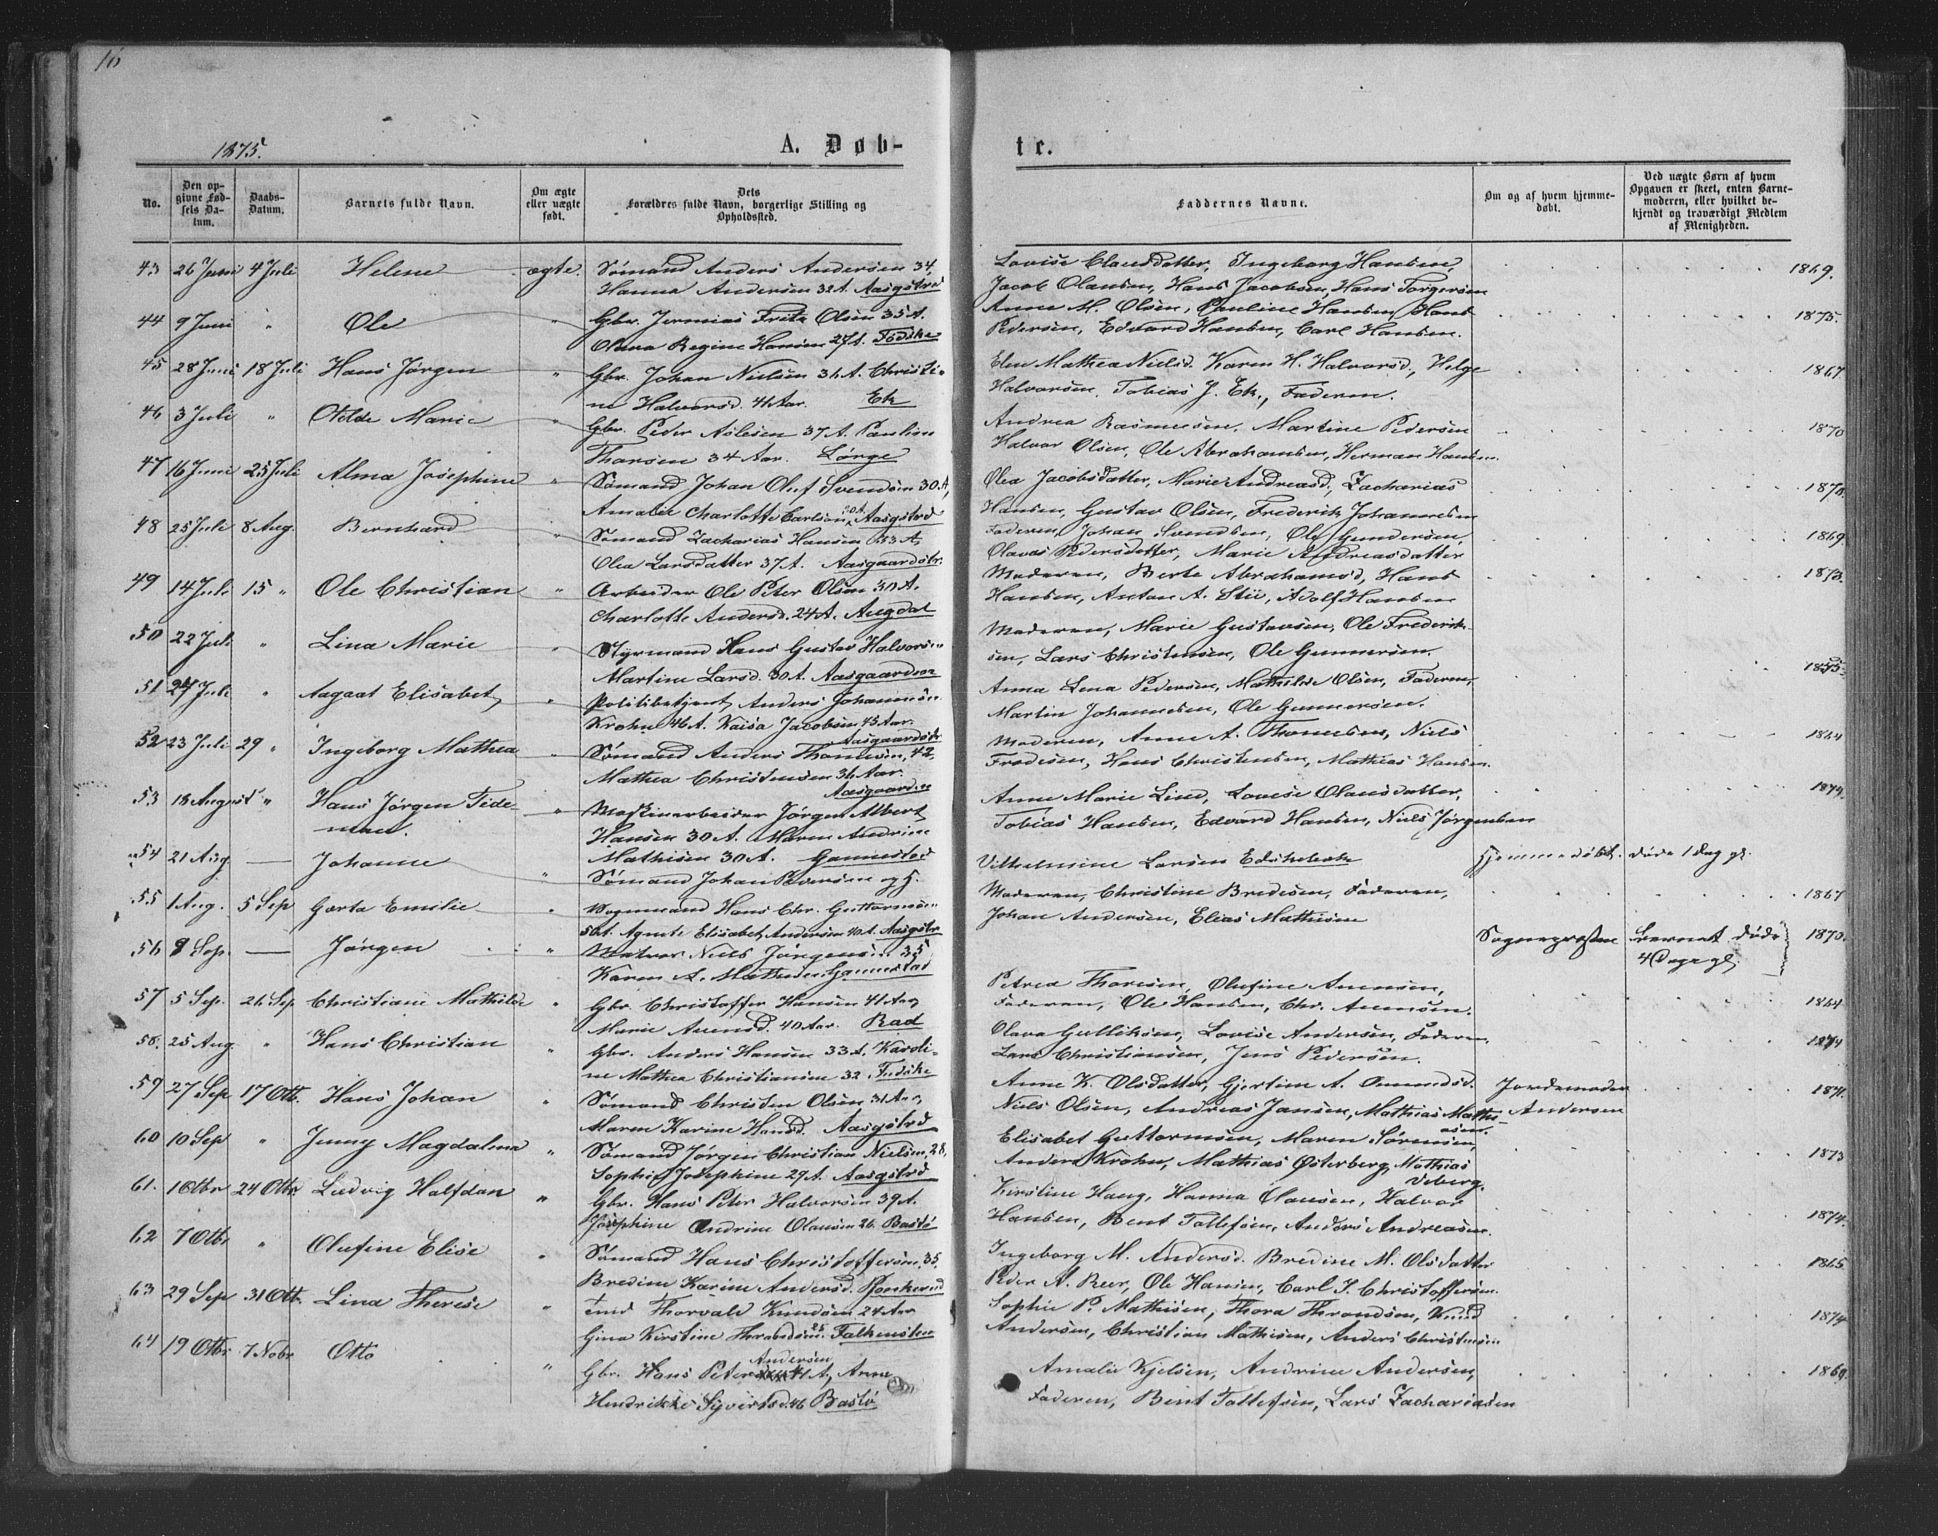 16
1875.
A. Døb-
te.
No.
Den op-
givne Fød-
sels Da-
tum.
Daabs-
Datum.
Barnets fulde Navn.
Om ægte
eller uægte
født.
Dets
Forældres fulde Navn, borgerlige Stilling og
Opholdssted.
Faddernes Navne.
Om og af hvem hjemme-
døbt.
Ved uægte Børn af hvem
Opgaven er skeet, enten Barne-
moderen, eller hvilket be-
kjendt og troværdigt Medlem
af Menigheden.
43 26 Juni 4 Juli Helene ægte. Sømand Anders Andersen 34,
Hanna Andersen 32 A. Aasgstrd
Lovise Clausdatter, Ingeborg Hansen,
Jacob Olausen, Hans Jacobsen, Hans Torgersen
1869.
44 9 Juni " Ole " Gbr. Jermias Fritz Olsen 35 A.
Olava Regine Hansen 27 A. Fodske
Anne M. Olsen, Pauline Hansen, Hans
Pedersen, Edvard Hansen, Carl Hansen.
1875.
45 28 Juni 18 Juli Hans Jørgen " Gbr. Johan Nielsen 31 A. Christi-
ne Halvorsd. 41 Aar. Ek
Elen Mathea Nielsd. Karen H. Halvorsd, Helge
Halvorsen, Tobias J. Ek., Faderen.
1867
46 3 Juli " Otilde Marie " Gbr. Peder Aslesen 37 A. Pauline
Thorsen 34 Aar. Lørge
Andrea Rasmussen, Martine Pedersen
Halvor Olsen, Ole Abrahamsen, Herman Hansen.
1870
47 16 Juni 25 Juli Alma Josephine " Sømand Johan Oluf Svendsen 30 A,
Amalie Charlotte Carlson 30 A. Aasgstrd
Olea Jacobsdatter, Marie Andreasd, Zacharias
Hansen, Gustav Olsen, Frederik Johannesen
Faderen, Johan Svendsen, Ole Gundersen
48 25 Juli 8 Aug. Bernhard " Sømand Zacharias Hansen 33 A,
Olea Larsdatter 37 A. Aasgaardstr.
Olavas Pedersdatter, Marie Andreasdatter
1869.
49 14 Juli 15 " Ole Christian " Arbeider Ole Peter Olsen 30 A.
Charlotte Andersd. 24 A. Augdal
Moderen, Berte Abrahamsd, Hans
Hansen, Anton A. Stii, Adolf Hansen
1873.
50 22 Juli " Lina Marie " Styrmand Hans Gustav Halvorsen
Martine Larsd. 30 A. Aasgaardstr
Moderen, Marie Gustavsen, Ole Frederik-
sen, Lars Christensen, Ole Gunnersen.
51 27 Juli " Aagaat Elisabet " Politibetjent Anders Johannesen
Krohn 46 A. Kaisa Jacobsen 43 Aar.
Aasgaardstr
Anna Lena Pedersen, Mathilde Olsen, Faderen,
Martin Johannesen, Ole Gunnersen.
52 23 Juli 29 " Ingeborg Mathea " Sømand Anders Thomesen, 42
Mathea Christensen 36 Aar.
Aasgaardstr
Moderen, Anne A. Thomesen, Niels
Fredisen, Hans Christensen, Mathias Hansen.
1864
53 18 August " Hans Jørgen Tide-
man. " Maskinarbeider Jørgen Albert
Hansen 30 A. Maren Andrine
Mathisen 30 A. Gannestad
Anne Marie Lised, Lovise Olausdatter,
Tobias Hansen, Edvard Hansen, Niels Jørgensen
1874.
54 21 Aug. Johanne " Sømand Johan Pedersen og H.
Vilhelmine Larsen Edshelsete
Hjemmedøbt. døde 1 Dag gl.
55 1 Aug. 5 Sep Gerta Emilie " Vognmand Hans Chr. Guttormsen
50 A. Agnete Elisabet Andersen 40 A. Aasgstr
Moderen, Christine Bredesen, Faderen,
Johan Andersen, Elias Mathisen
1867
56 8 Sep. Jørgen " Matros Niels Jørgensen 35
Karen A. Mathisen Gannestad
Sognepresten barnet døde
4 Dage gl.
1870.
57 5 Sep. 26 Sep Christiane Mathilde " Gbr. Christoffer Hansen 41 Aar,
Marie Amundsd. 40 Aar. Rød
Petrea Thoresen, Olufine Amensen,
Faderen, Ole Hansen, Chr. Amensen.
1864
58. 25 Aug. " Hans Christian " Gbr. Anders Hansen 33 A. Karoli-
ne Mathea Christiansen 32. Fodske
Olava Gulliksen, Lovise Andersen, Faderen,
Lars Christiansen, Jens Pedersen.
1874
59 27 Sep 17 Otb. Hans Johan " Sømand Christen Olsen 31 Aar,
Maren Karine Hansd. Aasgstrd
Anne K. Olsdatter, Gjertine A. Omundsd.
Niels Olsen, Andreas Jansen, Mathias Mathi-
asen.
Jordemoder
Andersen
1871.
60 10 Sep " Jenny Magdalena " Sømand Jørgen Christian Nielsen, 28,
Sophie Josephine 29 A. Aasgstrd
Elisabet Guttormsen, Maren Sørensen,
Anders Krohn, Mathias Østerberg, Mathias
Viberg.
1873
61. 1 Otbr 24 Otbr Ludvig Halfdan " Gbr. Hans Peter Halvorsen 39 A.
Josephine Andrine Olausen 26. Bastø
Kirstine Haug, Hanna Clausen, Halvor
Hansen, Bent Tollefsen, Anders Andreasen.
1874.
62 7 Otbr " Olufine Elise " Sømand Hans Christoffersen, 35.
Bredine Karine Andersd.
Ingeborg M. Andersd. Bredine M. Olsdatter
Peder A. Reer, Ole Hansen, Carl J. Christoffersen.
1865
63 29 Sep 31 Otb. Lina Therese " Smd Thorvald Knudsen 24 Aar
Gina Kirstine Throndsen 25. Falkensten
Sophie P. Mathisen, Thora Throndsen, Knud
Andersen, Christian Mathisen, Anders Christensen
1874
64 19 Otbr 7 Nobr Otto " Gbr. Hans Peter Andersen 41 A, Anne
Hendrikke Syvertsd. 46 Bastø
Amalie Kjelsen, Andrine Andersen,
Faderen, Bent Tollefsen, Lars Zachariasen